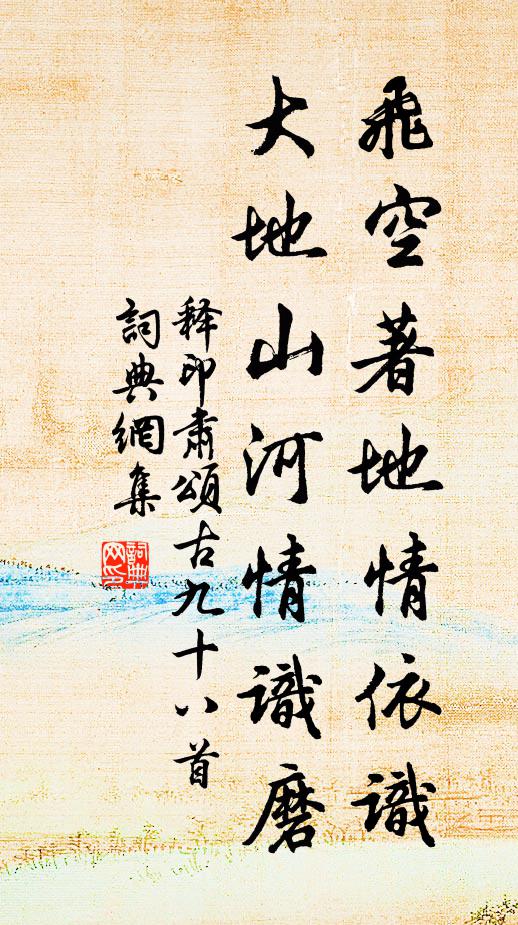 飛空著地情依識
大地山河情識磨
释印肅頌古九十八首
詞典網集
詞典网印